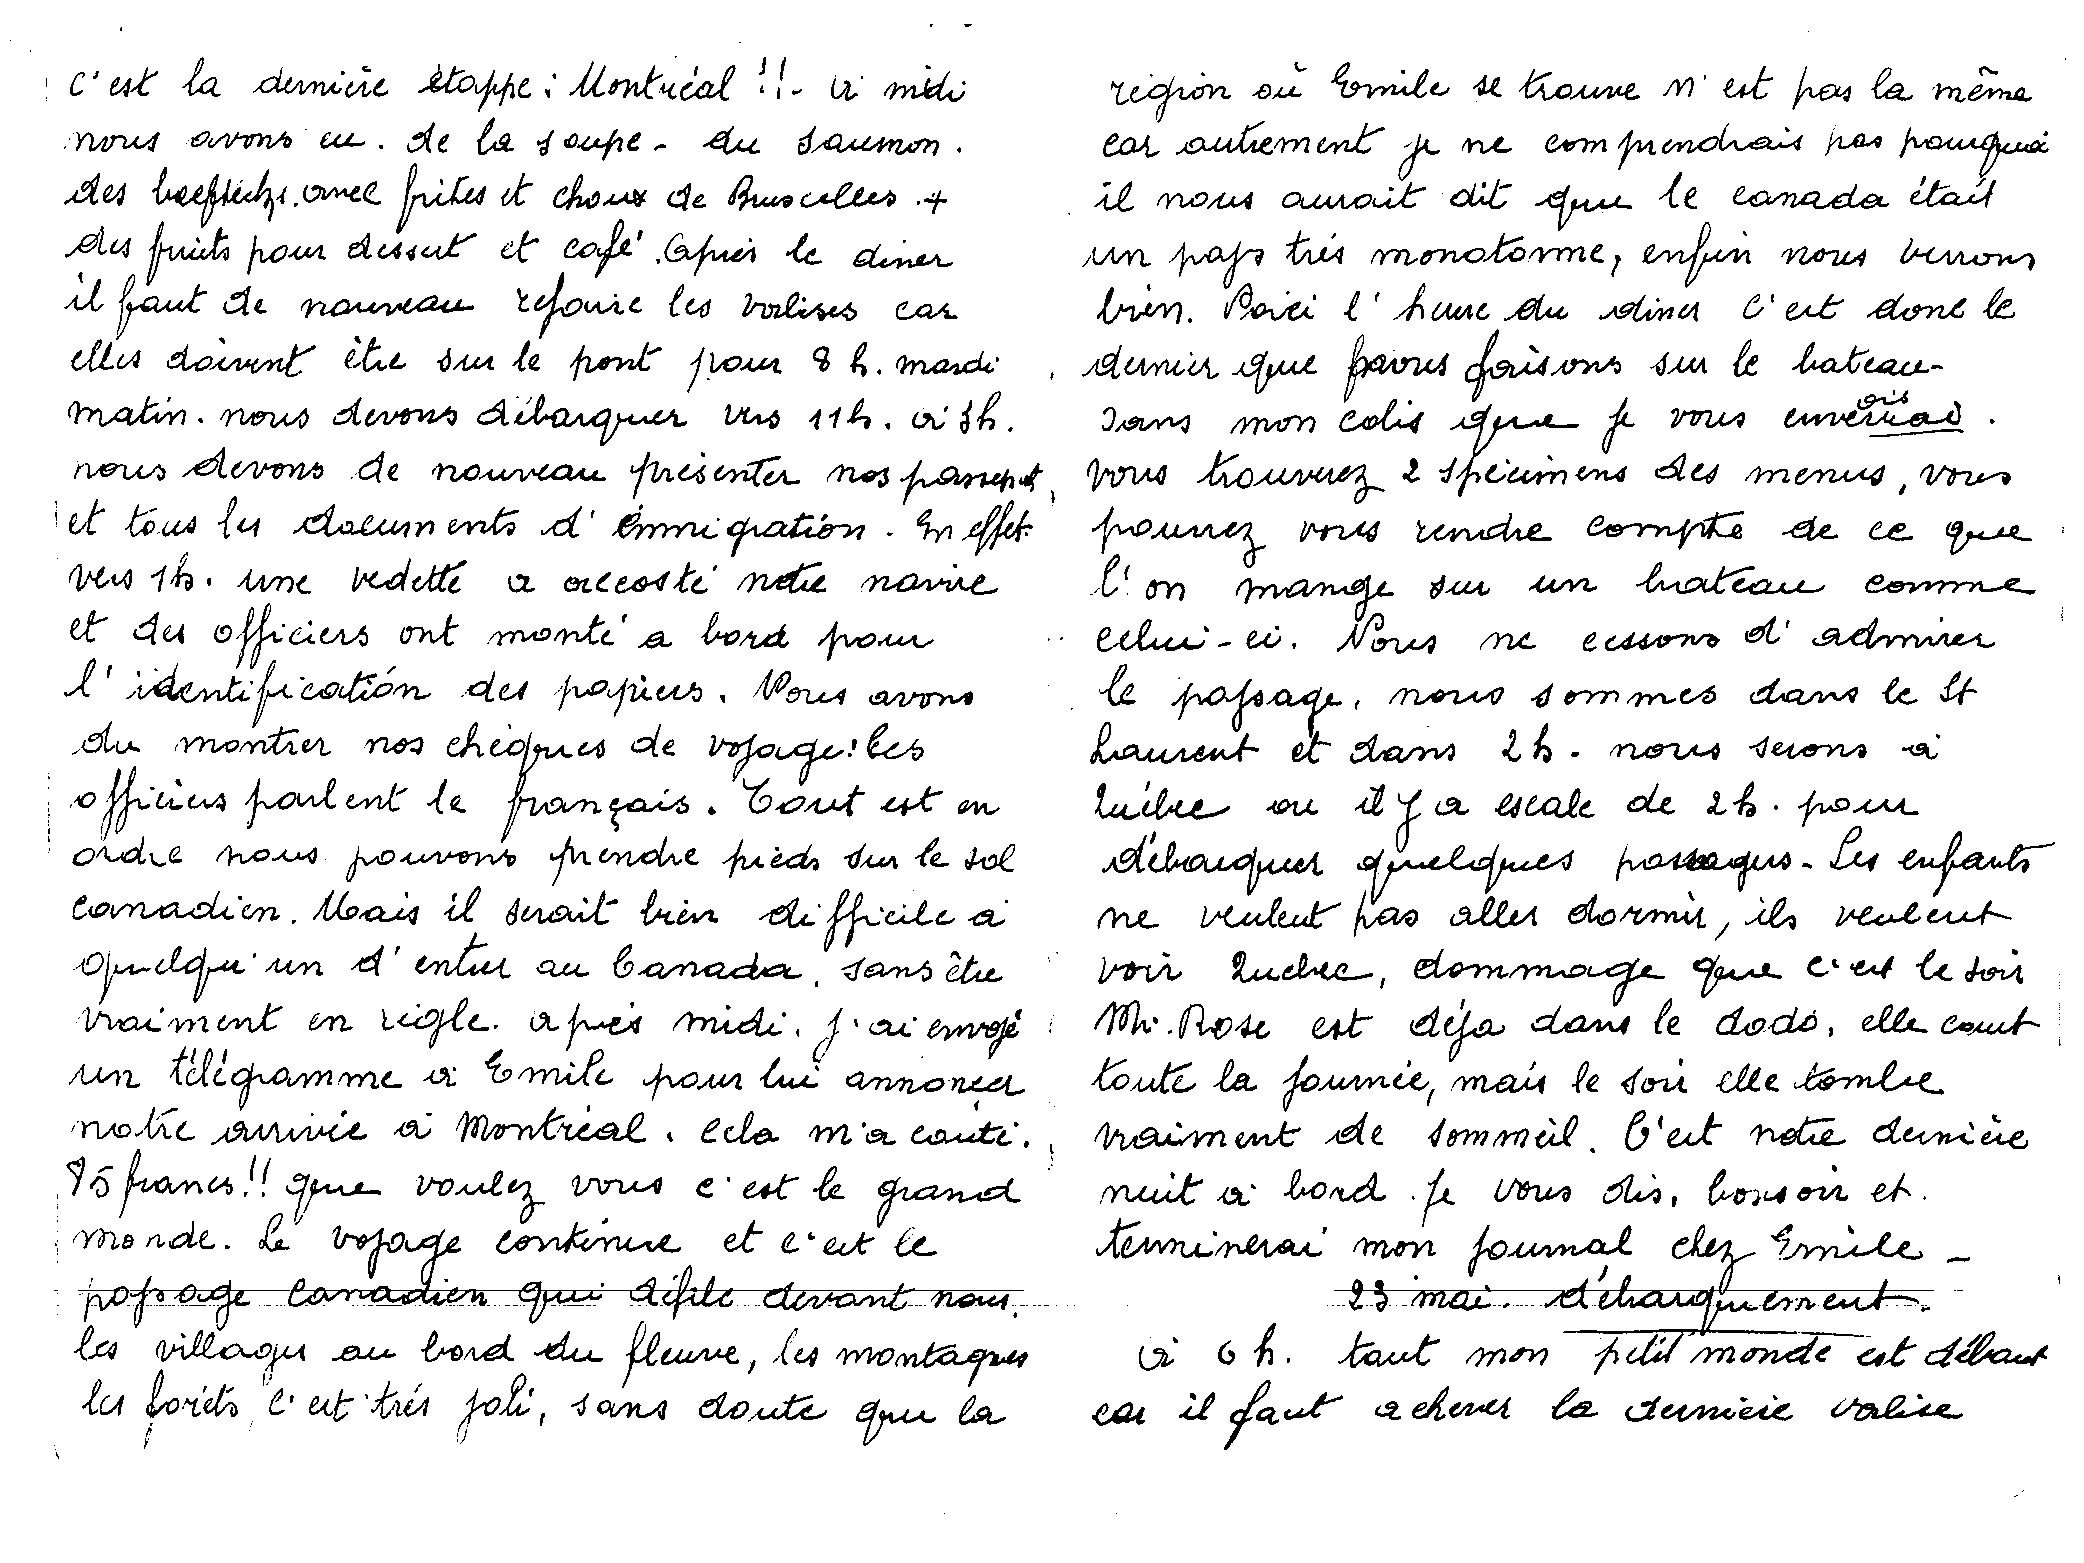 C'est la dernière étappe : Montréal !!- à midi
nous avons eu. de la soupe - du saumon.
des beefstecks. avec frites et choux de Bruxelles. +
des fruits pour dessert et café. Après le diner
il faut de nouveau refaire les valises car
elles doivent être sur le pont pour 8 h. mardi
matin. nous devons débarquer vers 11h. à 3h.
nous devons de nouveau présenter nos passeport
et tous les documents d'émmigration. En effet.
vers 1h. une vedette a accosté notre navire
et des officiers ont monté a bord pour
l'identification des papiers. Nous avons
du montrer nos chèques de voyage! Les
officiers parlent le français. Tout est en
ordre nous pouvons prendre pieds sur le sol
canadien. Mais il serait bien difficile à
quelqu'un d'entrer au Canada, sans être
vraiment en règle. après midi. j'ai envoyé
un télégramme à Emile pour lui annoncer
notre arrivée à Montréal. Cela m'a couté.
85 francs!! que voulez vous c'est le grand
monde. Le voyage continue et c'est le
paysage Canadien qui défile devant nous.
les villages au bord du fleuve, les montagnes
les forêts, c'est très joli, sans doute que la
région où Emile se trouve n'est pas la même
car autrement je ne comprendrais pas pourquoi
il nous aurait dit que le canada était
un pays très monotonne, enfin nous verrons
bien. Voici l'heure du diner c'est donc le
dernier que nous faisons sur le bateau-
Dans mon colis que je vous enverrai.
vous trouverez 2 spécimens des menus, vous
pourrez vous rendre compte de ce que
l'on mange sur un bateau comme
celui-ci. Nous ne cessons d'admirer
le paysage, nous sommes dans le St
Laurent et dans 2h. nous serons à
Québec ou il y a escale de 2h. pour
débarquer quelques passagers - Les enfants
ne veulent pas aller dormir, ils veulent
voir Quebec, dommage que c'est le soir
M. Rose est déja dans le dodo, elle court
toute la journée, mais le soir elle tombe
vraiment de sommeil. C'est notre dernière
nuit à bord. je vous dis, bonsoir et.
terminerai mon journal chez Emile -
23 mai. débarquement.
à 6 h. tout mon petit monde est débout
car il faut achever la dernière valise